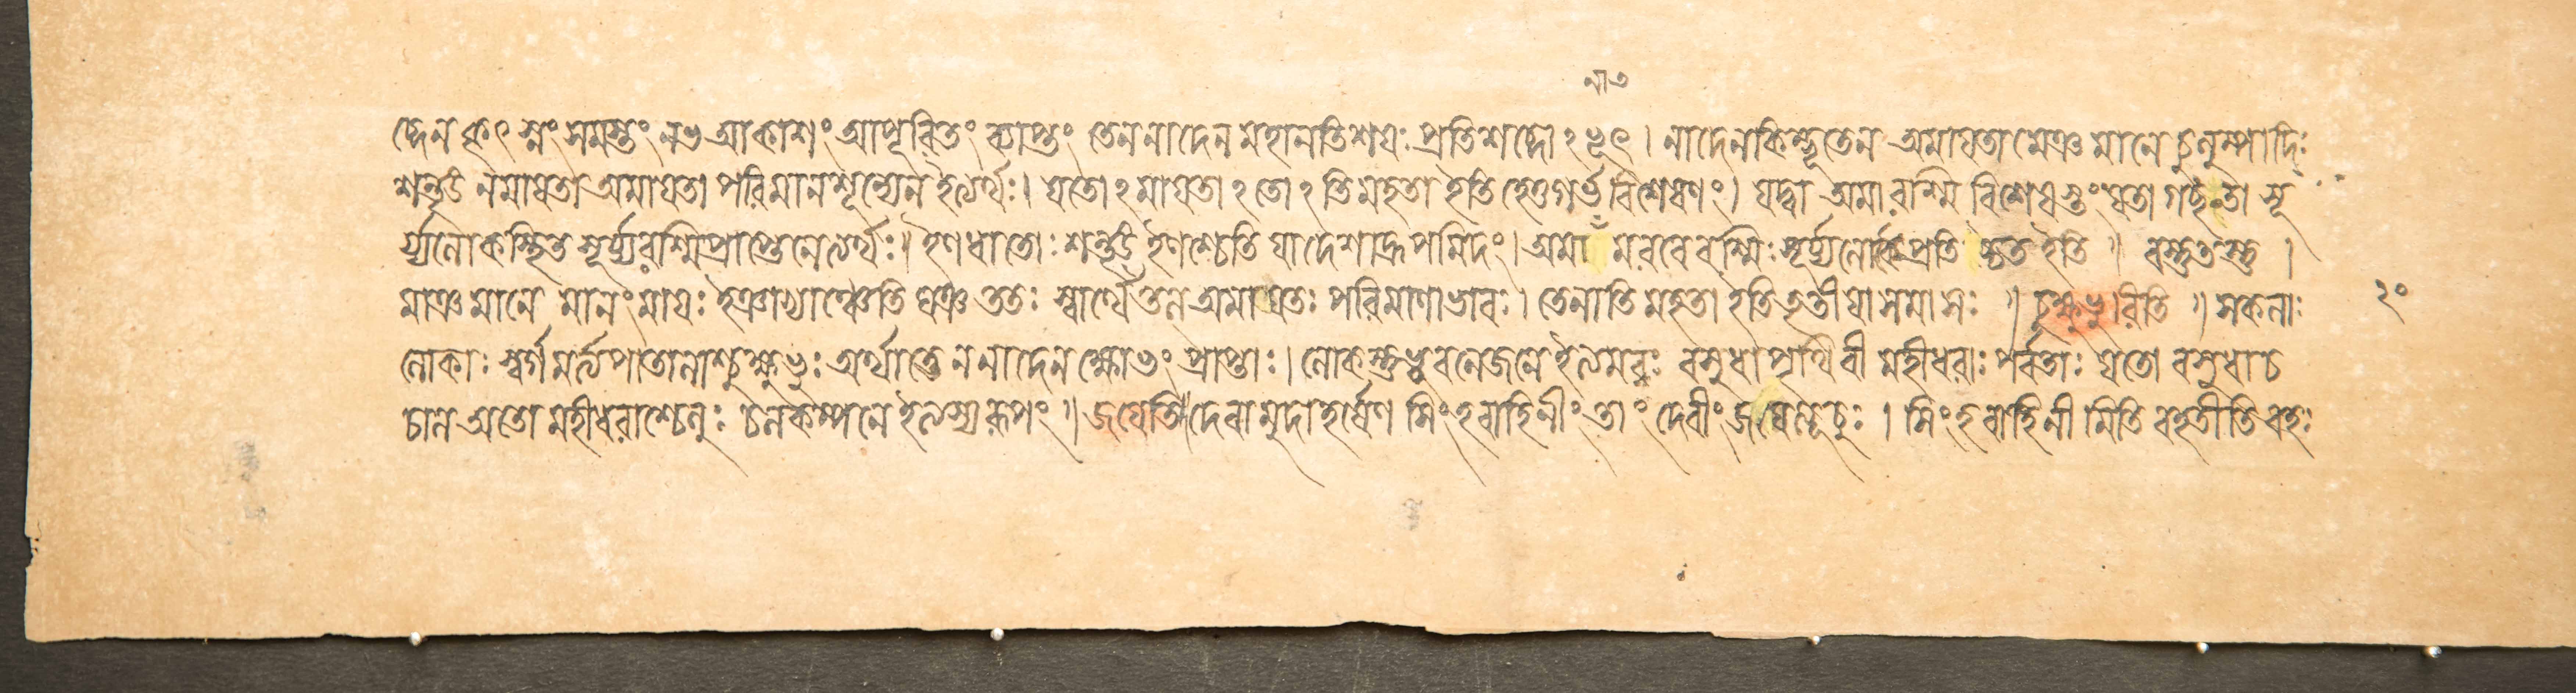 নাভ
ব্দেন কৃৎস্নং সমস্তং নভ আকাশং আপূরিতং ব্যাপ্তং তেন নাদেন মহানতিশয়ঃ প্রতিশব্দোঽভূৎ । নাদেন কিম্ভূতেন অমায়তা মেঞ মানে
শন্তৃঙ ন মায়তা অমায়তা পরিমানশূন্যেন ইত্যর্থঃ। যতোঽমায়তাঽতোঽতিমহতা ইতি হেতুগর্ভবিশেষণং। যদ্বা অমা রশ্মি বিশেষস্তং যতা গচ্ছতা সূ
র্য্যলোকস্থিত সূর্য্যরশ্মিপ্রাপ্তেনেত্যর্থঃ॥ ইণধাতোঃ শন্তৃঙ ইণশ্চেতি যাদেশাদ্রূপমিদং। অমা রবেরশ্মিঃ সূর্য্যলোকং প্রতি ইতি ॥ বস্তুতস্তু ।
মাঞ মানে মানং মায়ঃ ঘঞ ততঃ স্বার্থে তন অমায়তঃ পরিমাণাভাবঃ। তেনাতি মহতা ইতি তৃতীয়া সমাসঃ ॥ চুক্ষুভুরিতি ॥ সকলাঃ ২০
লোকাঃ স্বর্গমর্ত্যপাতালাশ্চুক্ষুভুঃ অর্থাত্তেন নাদেন ক্ষোভং প্রাপ্তাঃ। লোকস্তু ভুবনে জনে ইত্যমরঃ বসুধা পৃথিবী মহীধরাঃ পর্বতাঃ যতো বসুধা চ
চাল অতো মহীধরাশ্চেলুঃ চল কম্পনে ইত্যস্য রূপং ॥ জয়েতি॥ দেবা মুদা হর্ষেণ সিংহবাহিনীং তাং দেবীং জয়েত্যূচুঃ । সিংহবাহিনীমিতি বহতীতি বহঃ